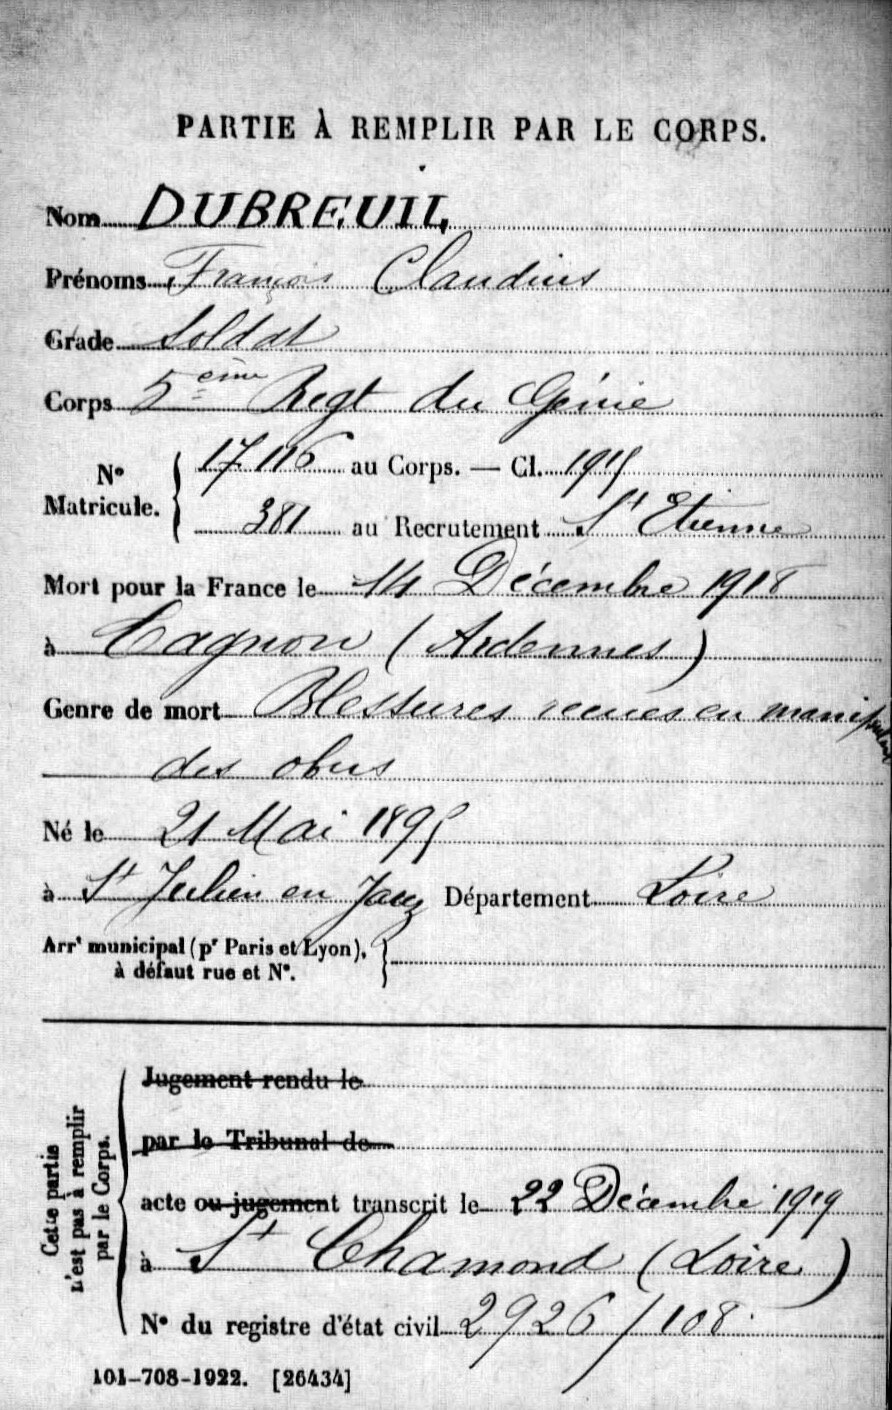 PARTIE À REMPLIR PAR LE CORPS.
Nom DUBREUIL
Prénoms François Claudius
Grade Soldat
Corps 5ème Regt du Génie
N° Matricule. 17116 au Corps. — Cl. 1915
381 au Recrutement St Etienne
Mort pour la France le 14 Décembre 1918
à Cagnon (Ardennes)
Genre de mort Blessures recues en manipulant
des obus
Né le 21 Mai 1895
à St Julien en Jarez Département Loire
Arrt municipal (pr Paris et Lyon),
à défaut rue et N°.
Cette partie
n'est pas à remplir
par le Corps.
Jugement rendu le
par le Tribunal de
acte ou jugement transcrit le 22 Décembre 1919
à St Chamond (Loire)
N° du registre d'état civil 2926/108.
101-708-1922. [26434]